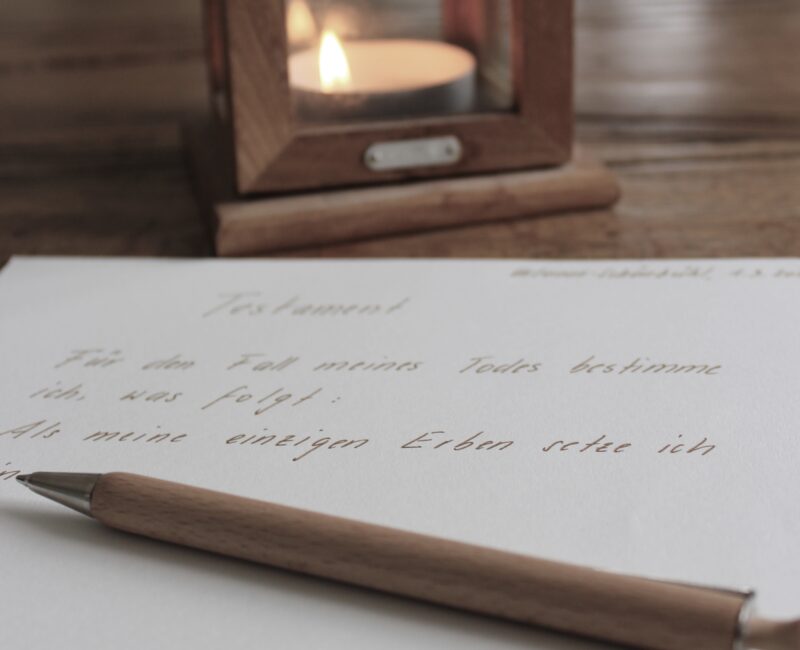 Testament
Für den Fall meines Todes bestimme
ich, was folgt:
Als meine einzigen Erben setze ich